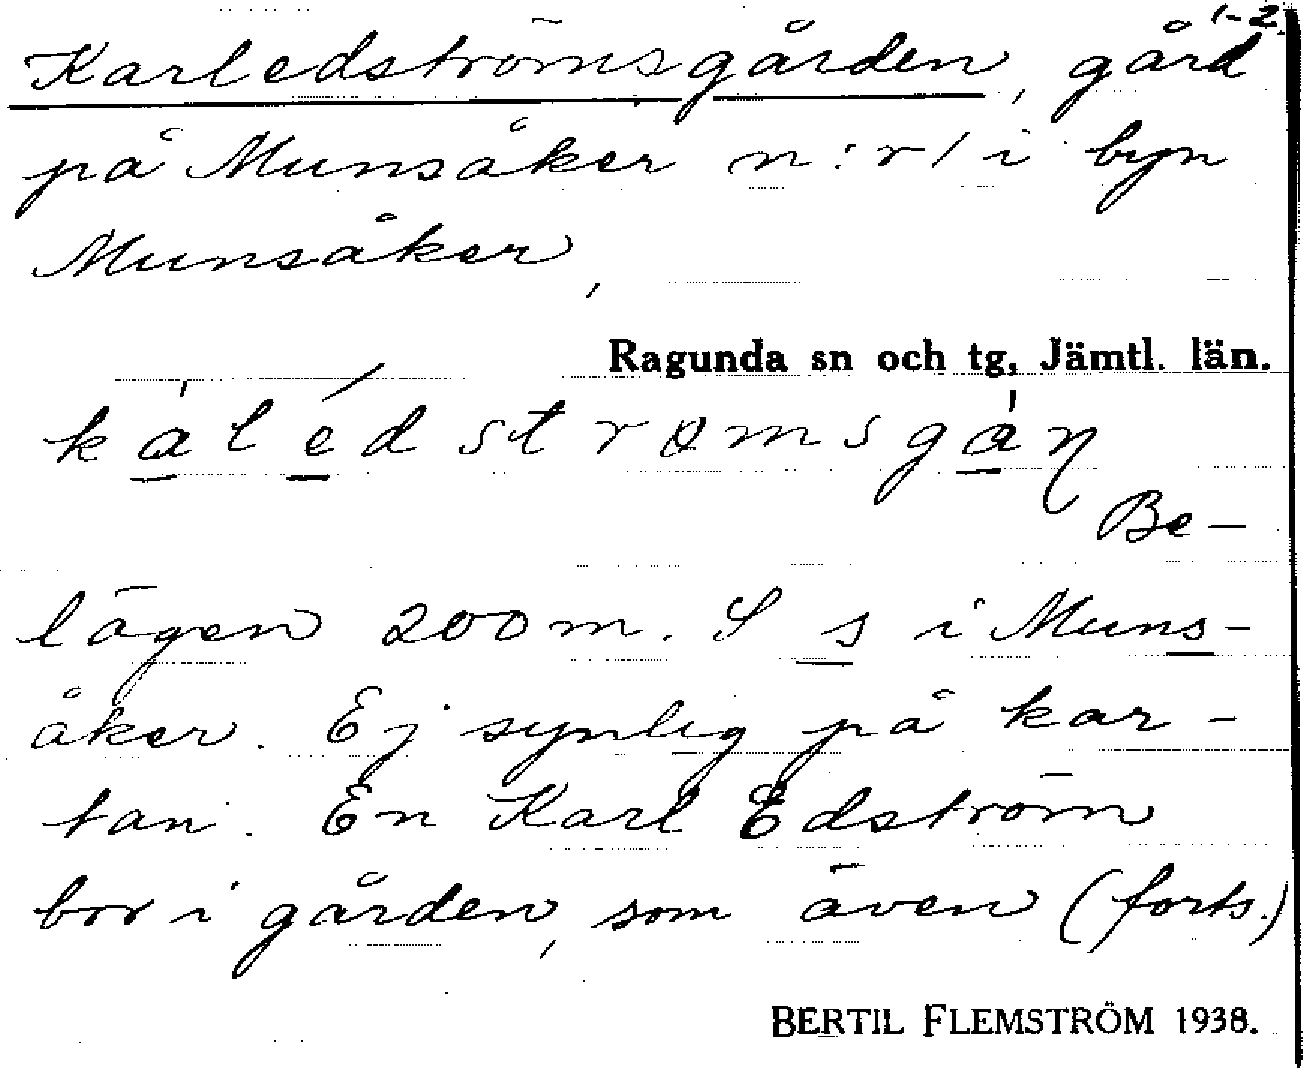 1-2.
Karledströmsgården, gård
på Munsåker n:r 1 i byn
Munsåker,
Ragunda sn och tg, Jämtl. län.
kàlédstrømsgàn
Be-
lägen 200 m. S s i Muns-
åker. Ej synlig på kar-
tan. En Karl Edström
bor i gården, som även (forts.)
BERTIL FLEMSTRÖM 1938.